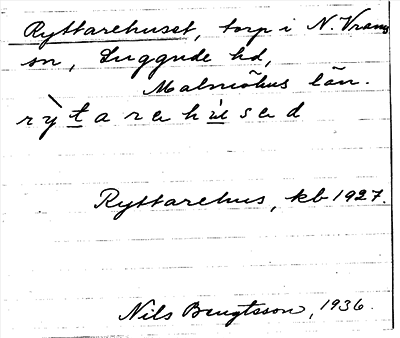 Ryttarehuset, torp i N. Vram
on, Luggude hd,
Malmöhus län.
rỳtarehùsad
Ryttarehus, kb 1927.
Nils Bengtsson, 1936.